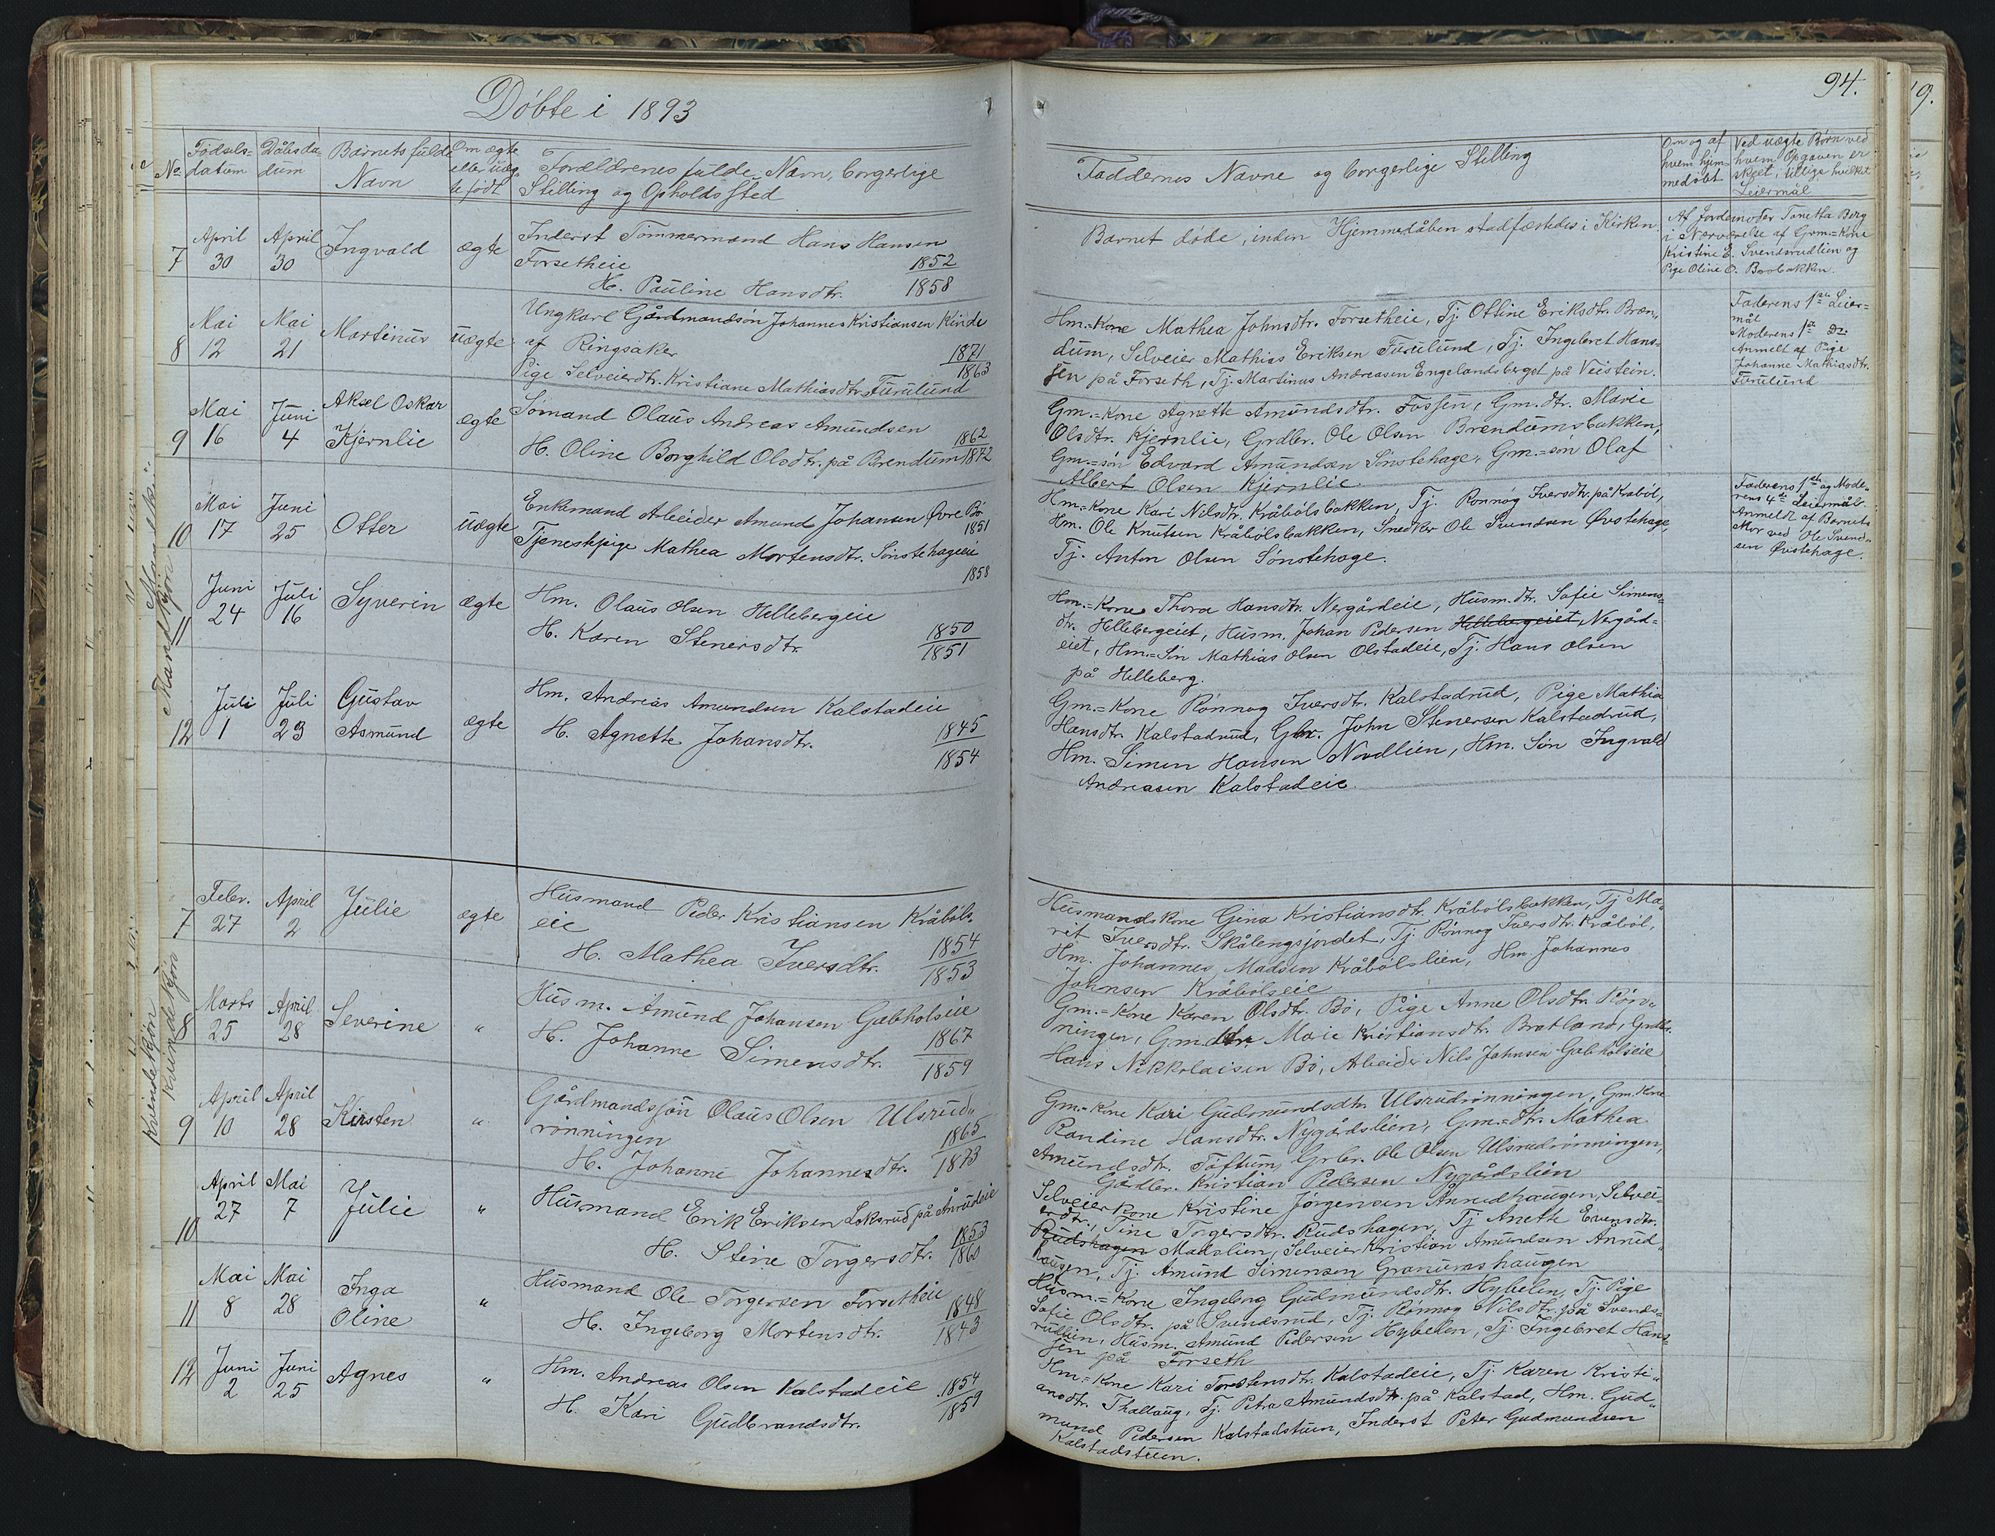 Döbte i 1893
94.
№ Fødsels-datum Dåbsda-tum Barnets fulde Navn Om ægte eller uæg-te født Forældrenes fulde Navn, borgerlige Stilling og Opholdssted
Faddernes Navne og borgerlige Stilling
Om og af hvem hjem-medöbt
Ved uægte Børn ved hvem Opgaven er skeet; tillige hvilket Leiermål
Mandkjøn
7 April 30 April 30 Ingvald ægte
Inderst Tømmermand Hans Hansen
Forsetheie 1852
H. Pauline Hansdtr. 1858
Barnet døde, inden Hjemmedåben stadfæstedes i Kirken
Af Jordemoder Tonetta Berg
i Nærværelse af Grm=Kone
Kristine E. Svendsrudlien og
Pige Oline O. Brobakken.
8 Mai 12 Mai 21 Martinus uægte
Ungkarl Gårdmandsön Johannes Kristiansen Kinde
af Ringsaker 1871
Pige Selveierdtr. Kristiane Mathiasdtr. Furulund 1863
Hm=Kone Mathea Johnsdtr. Forsetheie, Tj. Ottine Eriksdtr. Bræn-
dum, Selveier Mathias Eriksen Furulund, Tj. Ingebret Hans-
sen på Forseth, Tj. Martinus Andreasen Engelandsberget på Veistein.
Faderens 1ste Leier-
mål
Moderens 1ste do:
Anmelt af Pige
Johanne Mathiasdtr.
Furulund
9 Mai 16 Juni 4 Aksel Oskar Kjernlie ægte
Sømand Olaus Andreas Amundsen 1862
H. Oline Borghild Olsdtr. på Brendum 1872
Gm.=Kone Agnette Amundsdtr. Fossen, Gm. dtr. Marie
Olsdtr. Kjernlie, Grdbr. Ole Olsen Brendumsbakken,
Gm.=søn Edvard Amundsen Sønstehage, Gm.=søn Olaf
Albert Olsen Kjernlie.
10 Mai 17 Juni 25 Otter uægte
Enkemand Arbeider Amund Johansen Øvre Bö 1851
Tjenestepige Mathea Mortensdtr. Sønstehageeie 1858
Hm=Kone Kari Nilsdtr. Kråbölsbakken, Tj. Rønnøg Iversdtr. på Kråböl,
Hm. Ole Knutsen Kråbölsbakken, Snedker Ole Svendsen Øvstehage,
Tj. Anton Olsen Sønstehage.
Faderens 1ste og Mode-
rens 4de Leiermål.
Anmeldt af Barnets
Mor ved Ole Svend-
sen Øvstehage.
11 Juni 24 Juli 16 Syverin ægte
Hm. Olaus Olsen Hellebergeie 1850
H. Karen Stenersdtr. 1851
Hm.=Kone Thora Hansdtr. Nergårdeie, Husm.dtr. Sofie Simens-
dtr. Hellebergeiet, Husm. Johan Pedersen Hellebergeiet, Nergård-
eiet, Hm.=Søn Mathias Olsen Olstadeie, Tj. Hans Olsen
på Helleberg.
12 Juli 1 Juli 23 Gustav Asmund ægte
Hm. Andreas Amundsen Kalstadeie 1845
H. Agnette Johansdtr. 1854
Gm.=Kone Rønnog Iversdtr. Kalstadrud, Pige Mathia
Hansdtr. Kalstadrud, Gbr. John Stenersen Kalstadrud,
Hm. Simen Hansen Nordlien, Hm. Søn Ingvald
Andreasen Kalstadeie.
Kvindekjøn
Kvindekjøn
7 Febr. 27 April 2 Julie ægte
Husmand Peder Kristiansen Kråböls-
eie 1854
H. Mathea Iversdtr. 1853
Husmandskone Gina Kristiansdtr. Kråbölsbakken, Tj. Ma-
rit Iversdtr. Skålengsjordet, Tj. Rønnog Iversdtr. Kråböl,
Hm. Johannes Madsen Kråbölslien, Hm Johannes
Johnsen Kråbölseie
8 Marts 25 April 28 Severine "
Husm. Amund Johansen Gabholseie 1867
H. Johanne Simensdtr. 1859
Gm.=Kone Karen Olsdtr. Bö, Pige Anne Olsdtr. Røn-
ningen, Gmdtr. Maie Kristiansdtr. Bratland, Grdbr.
Hans Nikkolaisen Bö, Arbeider Nils Johnsen Gabholseie
9 April 10 April 28 Kirsten "
Gårdmandssøn Olaus Olsen Ulsrud-
rönningen 1865
H. Johanne Johannesdtr. 1873
Gm=Kone Kari Gudmundsdtr. Ulsrudrønningen, Gm. Kone
Randine Hansdtr. Nygårdslien, Gm=dtr. Mathea
Amundsdtr. Toftum, Grbr. Ole Olsen Ulsrudrønningen,
Gårdbr. Kristian Pedersen Nygårdslien
10 April 27 Mai 7 Julie "
Husmand Erik Eriksen Loksrud på Anrudeie 1853
H. Stine Torgersdtr. 1860
Selveier Kone Kristine Jørgensen Anrudhaugen, Selvei-
erdtr. Tine Torgersdtr. Rudshagen, Tj Anette Evensdtr.
Rudshagen Madslien, Selveier Kristian Amundsen Anrud-
haugen, Tj. Amund Simensen Granumshaugen
11 Mai 8 Mai 28 Inga Oline "
Husmand Ole Torgersen Forsetheie 1848
H. Ingeborg Mortensdtr. 1843
Husm.=Kone Ingeborg Gudmundsdtr. Hybelen, Tj. Pige
Sofie Olsdtr. på Svendsrud, Tj. Rønnog Nilsdtr. på Svends-
rudlien, Husm. Amund Pedersen Hybelen, Tj. Ingebret Hans-
sen på Forseth
12 Juni 2 Juni 25 Agnes "
Hm. Andreas Olsen Kalstadeie 1854
H. Kari Gudbrandsdtr. 1859
Hm=Kone Kari Torstensdtr. Kalstadeie, Tj. Karen Kristi-
ansdtr. Thallaug, Tj. Petra Amundsdtr. på Kalstad, Hm. Gud-
mund Pedersen Kalstadstuen, Inderst Peter Gudmundsen
Kalstadstuen.